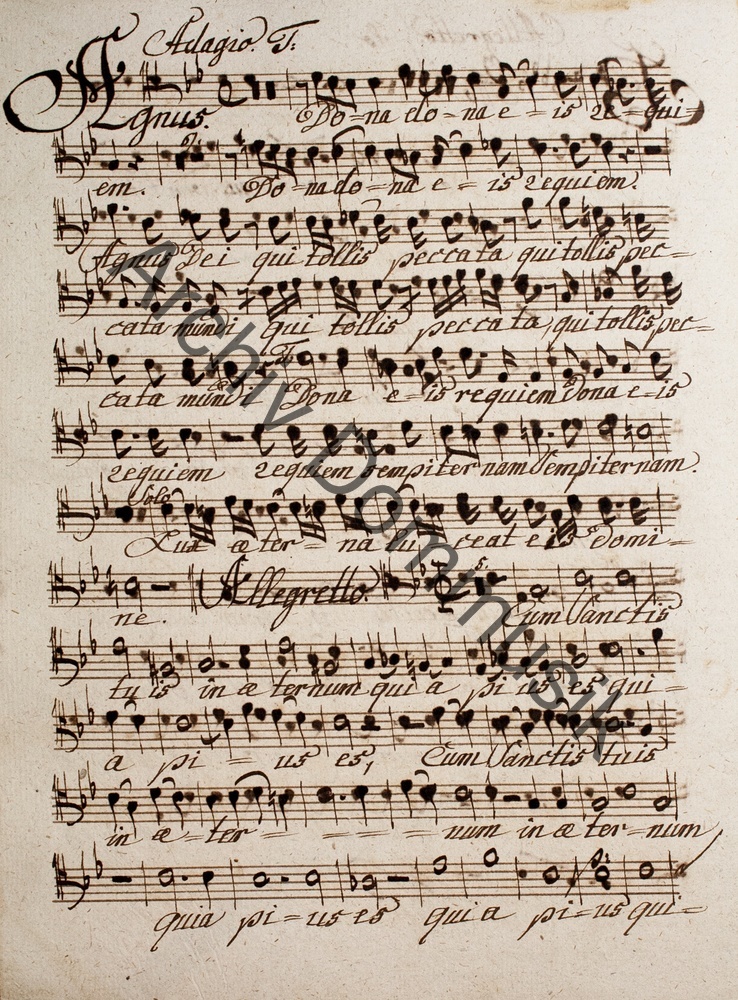 Adagio. T:
Agnus. Do=na do=na e=is re=qui
em. Do=na do=na e=is requiem.
Agnus Dei qui tollis peccata qui tollis pec=
cata mundi qui tollis peccata, qui tollis pec=
T:
cata mundi Dona e=is requiem dona e=is
requiem requiem sempiternam Sempiternam.
Solo
Lux æter=na lu=ceat eis domi=
Allegretto. 5.
ne. Cum Sanctis
tuis in æternum quia pius es qui=
a pi=us es, Cum Sanctis tuis
in æ=ter= = = = =num in æter=num
quia pi=us es quia pi=us qui=
Archiv Dommusik